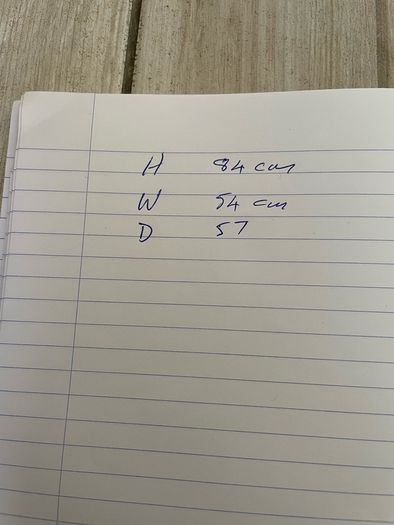 H 84 cm
W 54 cm
D 57